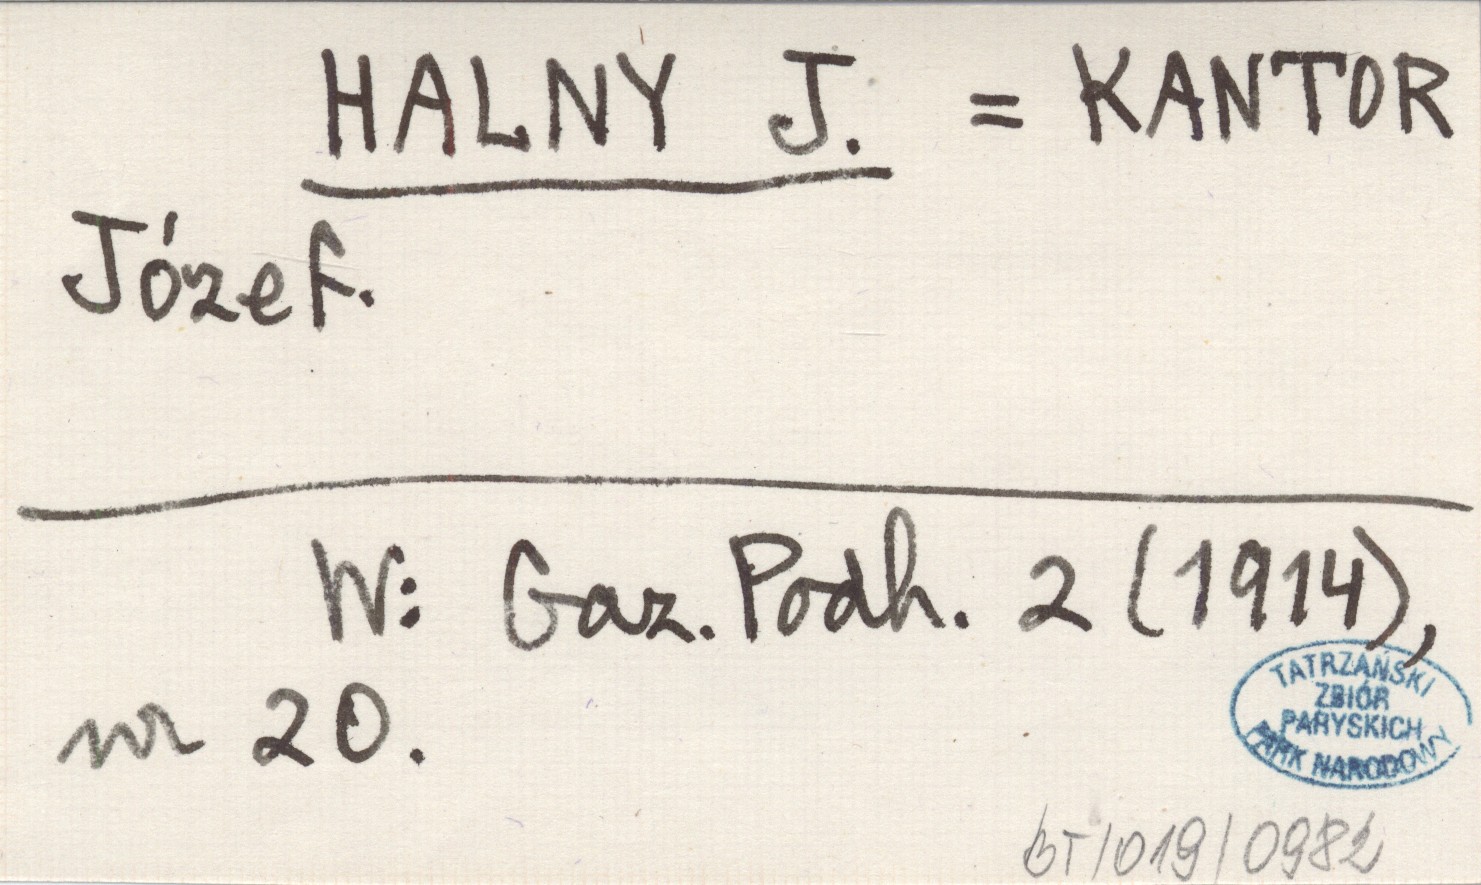 HALNY J. = KANTOR
Józef.
W: Gaz. Podh. 2 (1914),
nr 20.
TATRZAŃSKI
ZBIÓR
PARYSKICH
PARK NARODOWY
BT/019/0982